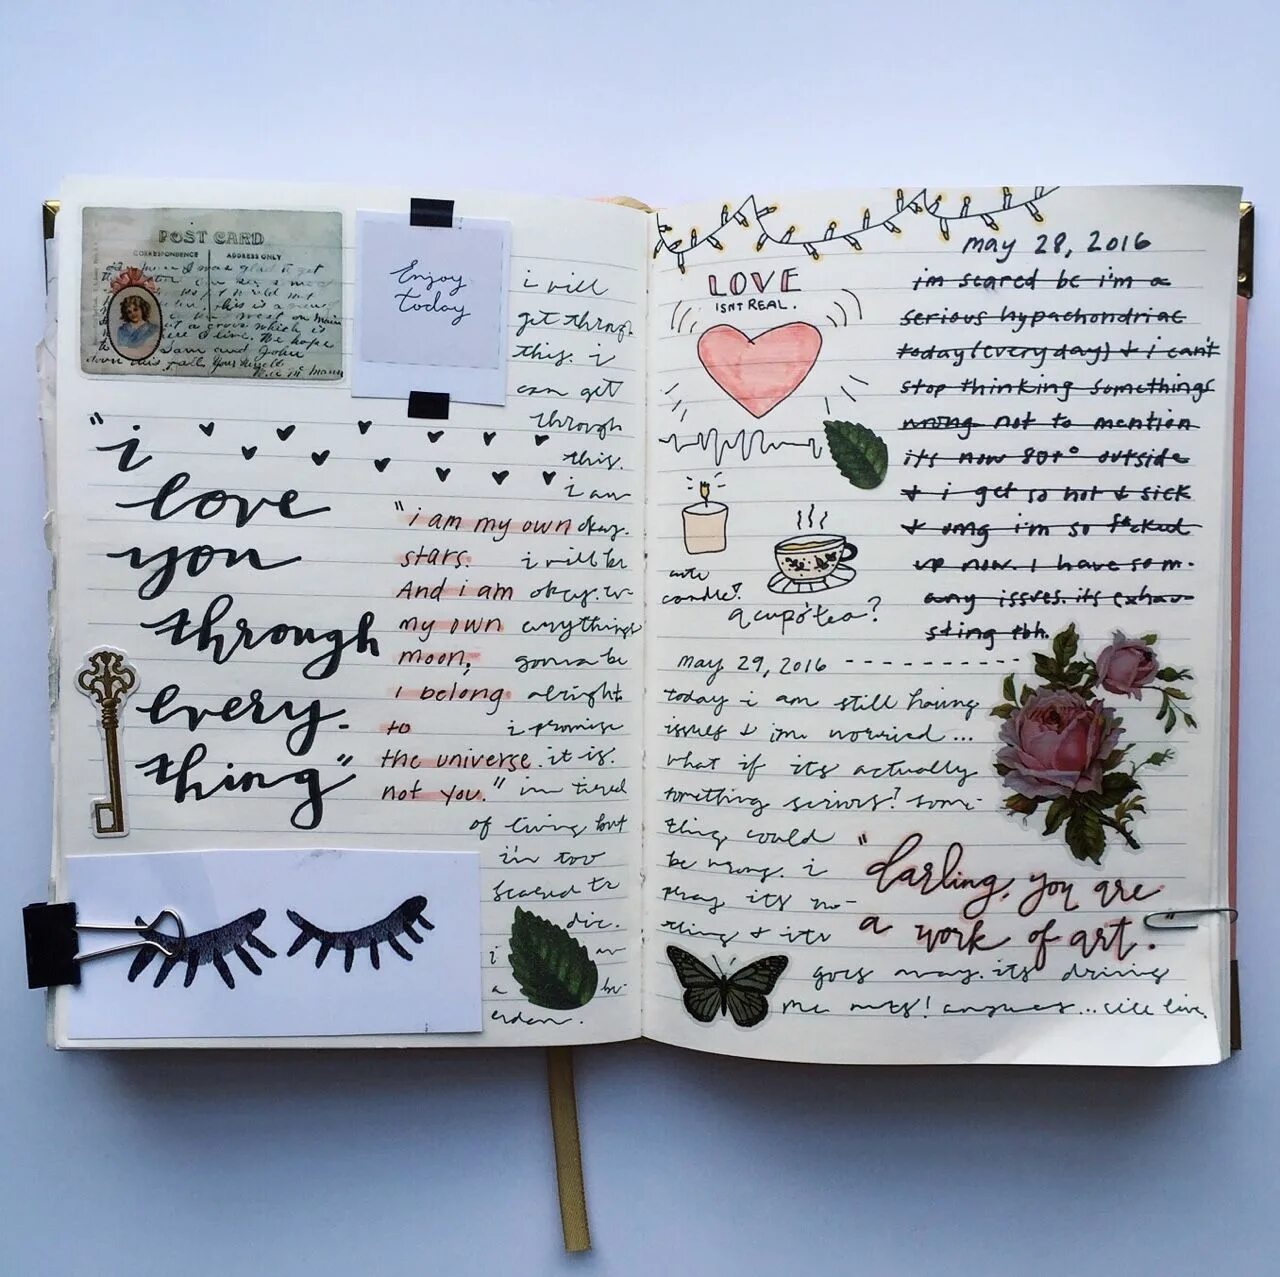 POST CARD
CORRESPONDENCE
ADDRESS ONLY
Enjoy
today
"i
love
you
through
every-
thing"
"i am my own
stars.
And i am
my own
moon;
i belong
to
the universe.
not you."
i will
get through
this. i
can get
through
this.
i am
okay.
i will be
okay. ev-
erything's
gonna be
alright
i promise
it is.
im tired
of living but
i'm too
scared to
die.
i am
a bu-
rden.
LOVE
ISNT REAL.
cute
candle?
a cup o' tea?
may 28, 2016
im scared bc i'm a
serious hypochondriac
today (everyday) + i can't
stop thinking somethings
wrong not to mention
its now 80+° outside
+ i get so hot + sick
+ omg i'm so f*cked
up now. i have so m-
any issues. its exhau-
sting tbh.
may 29, 2016
today i am still having
issues + im worried...
what if its actually
something serious? some-
thing could
be wrong. i
pray its no-
thing + its
goes away. its driving
me nuts! anyways... life
"darling, you are
a work of art."